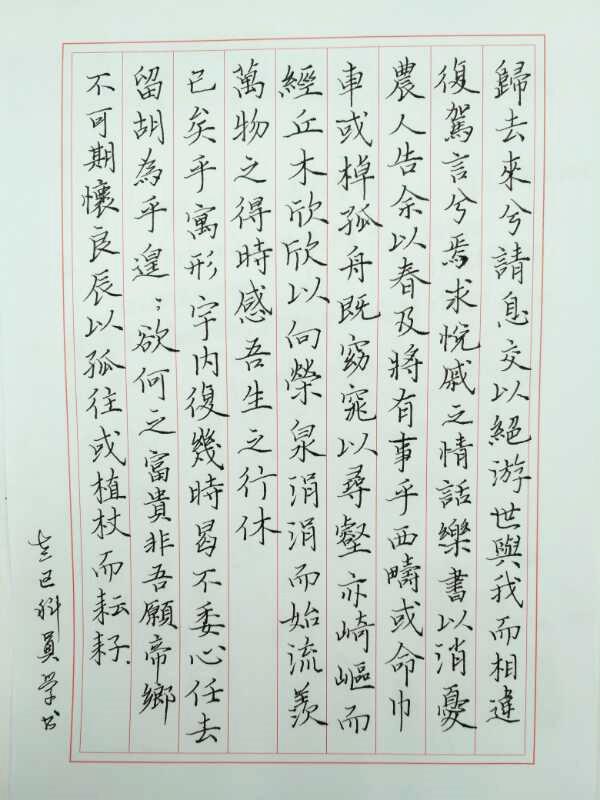 歸去來兮請息交以絕游世與我而相違
復駕言兮焉求悅戚之情話樂書以消憂
農人告余以春及將有事乎西疇或命巾
車或棹孤舟既窈窕以尋壑亦崎嶇而
經丘木欣欣以向榮泉涓涓而始流羨
萬物之得時感吾生之行休
已矣乎寓形宇內復幾時曷不委心任去
留胡為乎遑；欲何之富貴非吾願帝鄉
不可期懷良辰以孤往或植杖而耘耔
科員学书